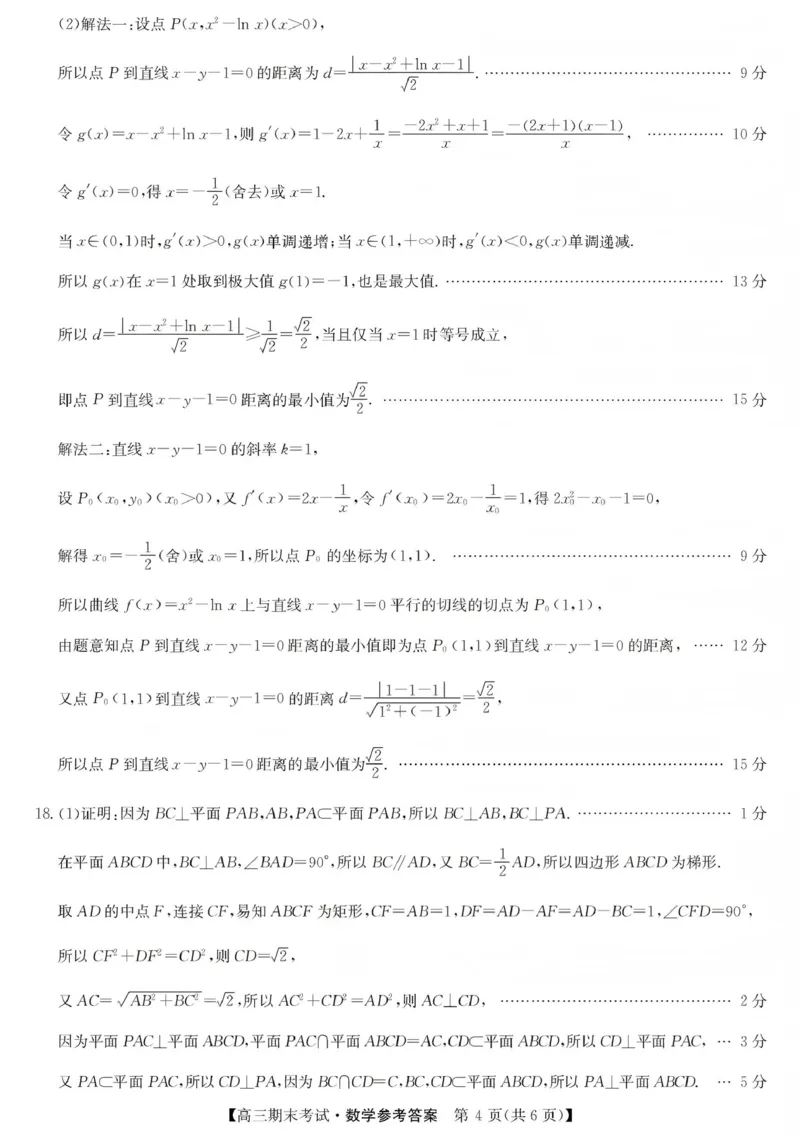 (2)解法一:设点 P(x,x²-ln x)(x>0),
所以点 P 到直线 x-y-1=0 的距离为 d=|x-x²+ln x-1|/√2. ………… 9 分
令 g(x)=x-x²+ln x-1,则 g′(x)=1-2x+1/x=(-2x²+x+1)/x=-(2x+1)(x-1)/x, ………… 10 分
令 g′(x)=0,得 x=-1/2(舍去)或 x=1.
当 x∈(0,1)时,g′(x)>0,g(x)单调递增;当 x∈(1,+∞)时,g′(x)<0,g(x)单调递减.
所以 g(x)在 x=1 处取到极大值 g(1)=-1,也是最大值. ………… 13 分
所以 d=|x-x²+ln x-1|/√2≥1/√2=√2/2,当且仅当 x=1 时等号成立,
即点 P 到直线 x-y-1=0 距离的最小值为√2/2. ………… 15 分
解法二:直线 x-y-1=0 的斜率 k=1,
设 P₀(x₀,y₀)(x₀>0),又 f′(x)=2x-1/x,令 f′(x₀)=2x₀-1/x₀=1,得 2x₀²-x₀-1=0,
解得 x₀=-1/2(舍)或 x₀=1,所以点 P₀ 的坐标为(1,1). ………… 9 分
所以曲线 f(x)=x²-ln x 上与直线 x-y-1=0 平行的切线的切点为 P₀(1,1),
由题意知点 P 到直线 x-y-1=0 距离的最小值即为点 P₀(1,1)到直线 x-y-1=0 的距离, …… 12 分
又点 P₀(1,1)到直线 x-y-1=0 的距离 d=|1-1-1|/√(1²+(-1)²)=√2/2,
所以点 P 到直线 x-y-1=0 距离的最小值为√2/2. ………… 15 分
18.(1)证明:因为 BC⊥平面 PAB,AB,PA⊂平面 PAB,所以 BC⊥AB,BC⊥PA. ………… 1 分
在平面 ABCD 中,BC⊥AB,∠BAD=90°,所以 BC∥AD,又 BC=1/2AD,所以四边形 ABCD 为梯形.
取 AD 的中点 F,连接 CF,易知 ABCF 为矩形,CF=AB=1,DF=AD-AF=AD-BC=1,∠CFD=90°,
所以 CF²+DF²=CD²,则 CD=√2,
又 AC=√(AB²+BC²)=√2,所以 AC²+CD²=AD²,则 AC⊥CD, ………… 2 分
因为平面 PAC⊥平面 ABCD,平面 PAC∩平面 ABCD=AC,CD⊂平面 ABCD,所以 CD⊥平面 PAC, … 3 分
又 PA⊂平面 PAC,所以 CD⊥PA,因为 BC∩CD=C,BC,CD⊂平面 ABCD,所以 PA⊥平面 ABCD. … 5 分
【高三期末考试·数学参考答案 第 4 页(共 6 页)】